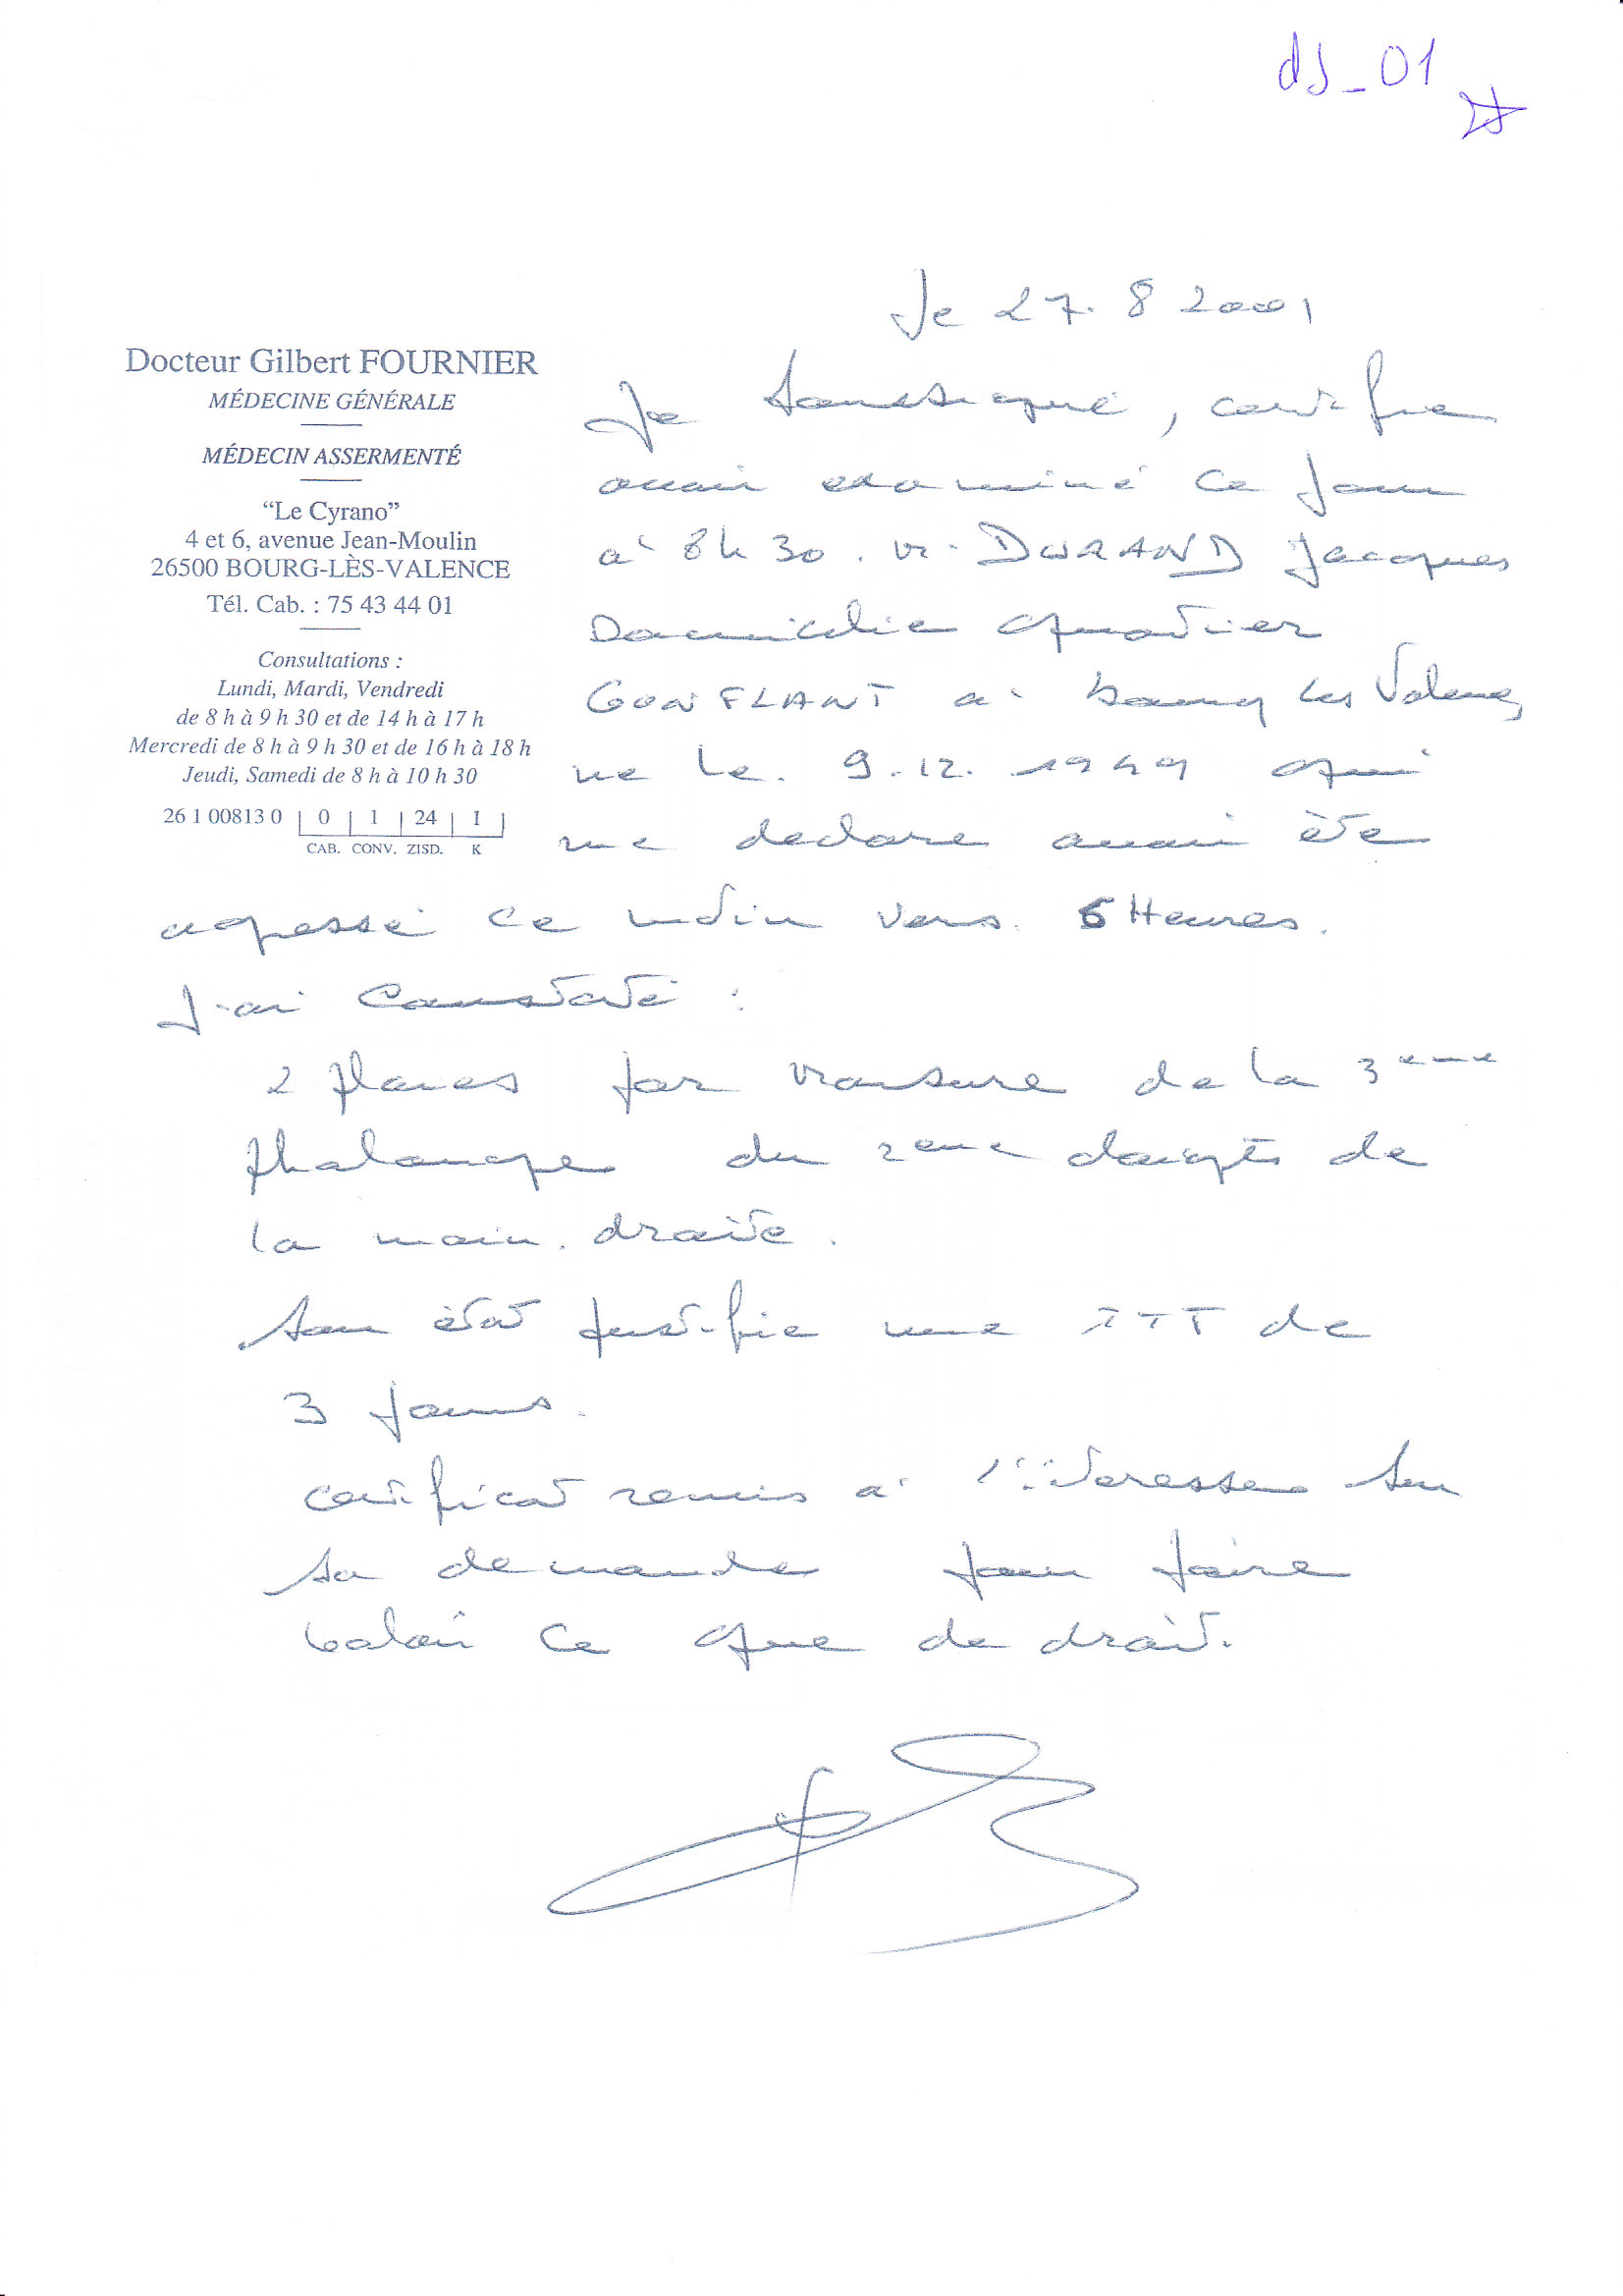 dJ_01
Docteur Gilbert FOURNIER
MÉDECINE GÉNÉRALE
MÉDECIN ASSERMENTÉ
“Le Cyrano”
4 et 6, avenue Jean-Moulin
26500 BOURG-LÈS-VALENCE
Tél. Cab. : 75 43 44 01
Consultations :
Lundi, Mardi, Vendredi
de 8 h à 9 h 30 et de 14 h à 17 h
Mercredi de 8 h à 9 h 30 et de 16 h à 18 h
Jeudi, Samedi de 8 h à 10 h 30
26 1 00813 0 | 0 | 1 | 24 | 1 |
CAB. CONV. ZISD. K
le 27. 8 2001
Je soussigné, certifie
avoir examiné ce jour
à 8h30. Mr. DURAND Jacques
Domicilié quartier
GONFLANT à bourg les Valence,
né le. 9.12. 1949 qui
me declare avoir été
agressé ce matin vers. 6 Heures.
J'ai Constaté :
2 plaies par morsure de la 3eme
phalange du 2eme doigts de
la main. droite.
Son état justifie une ITT de
3 jours.
certificat remis à l'interessé sur
sa demande pour faire
valoir ce que de droit.